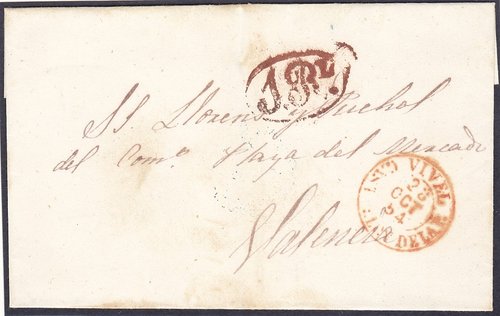 SS. Llorens y Puchol
del Comº Plaza del Mercado
Valencia
VIVEL
23
OCT